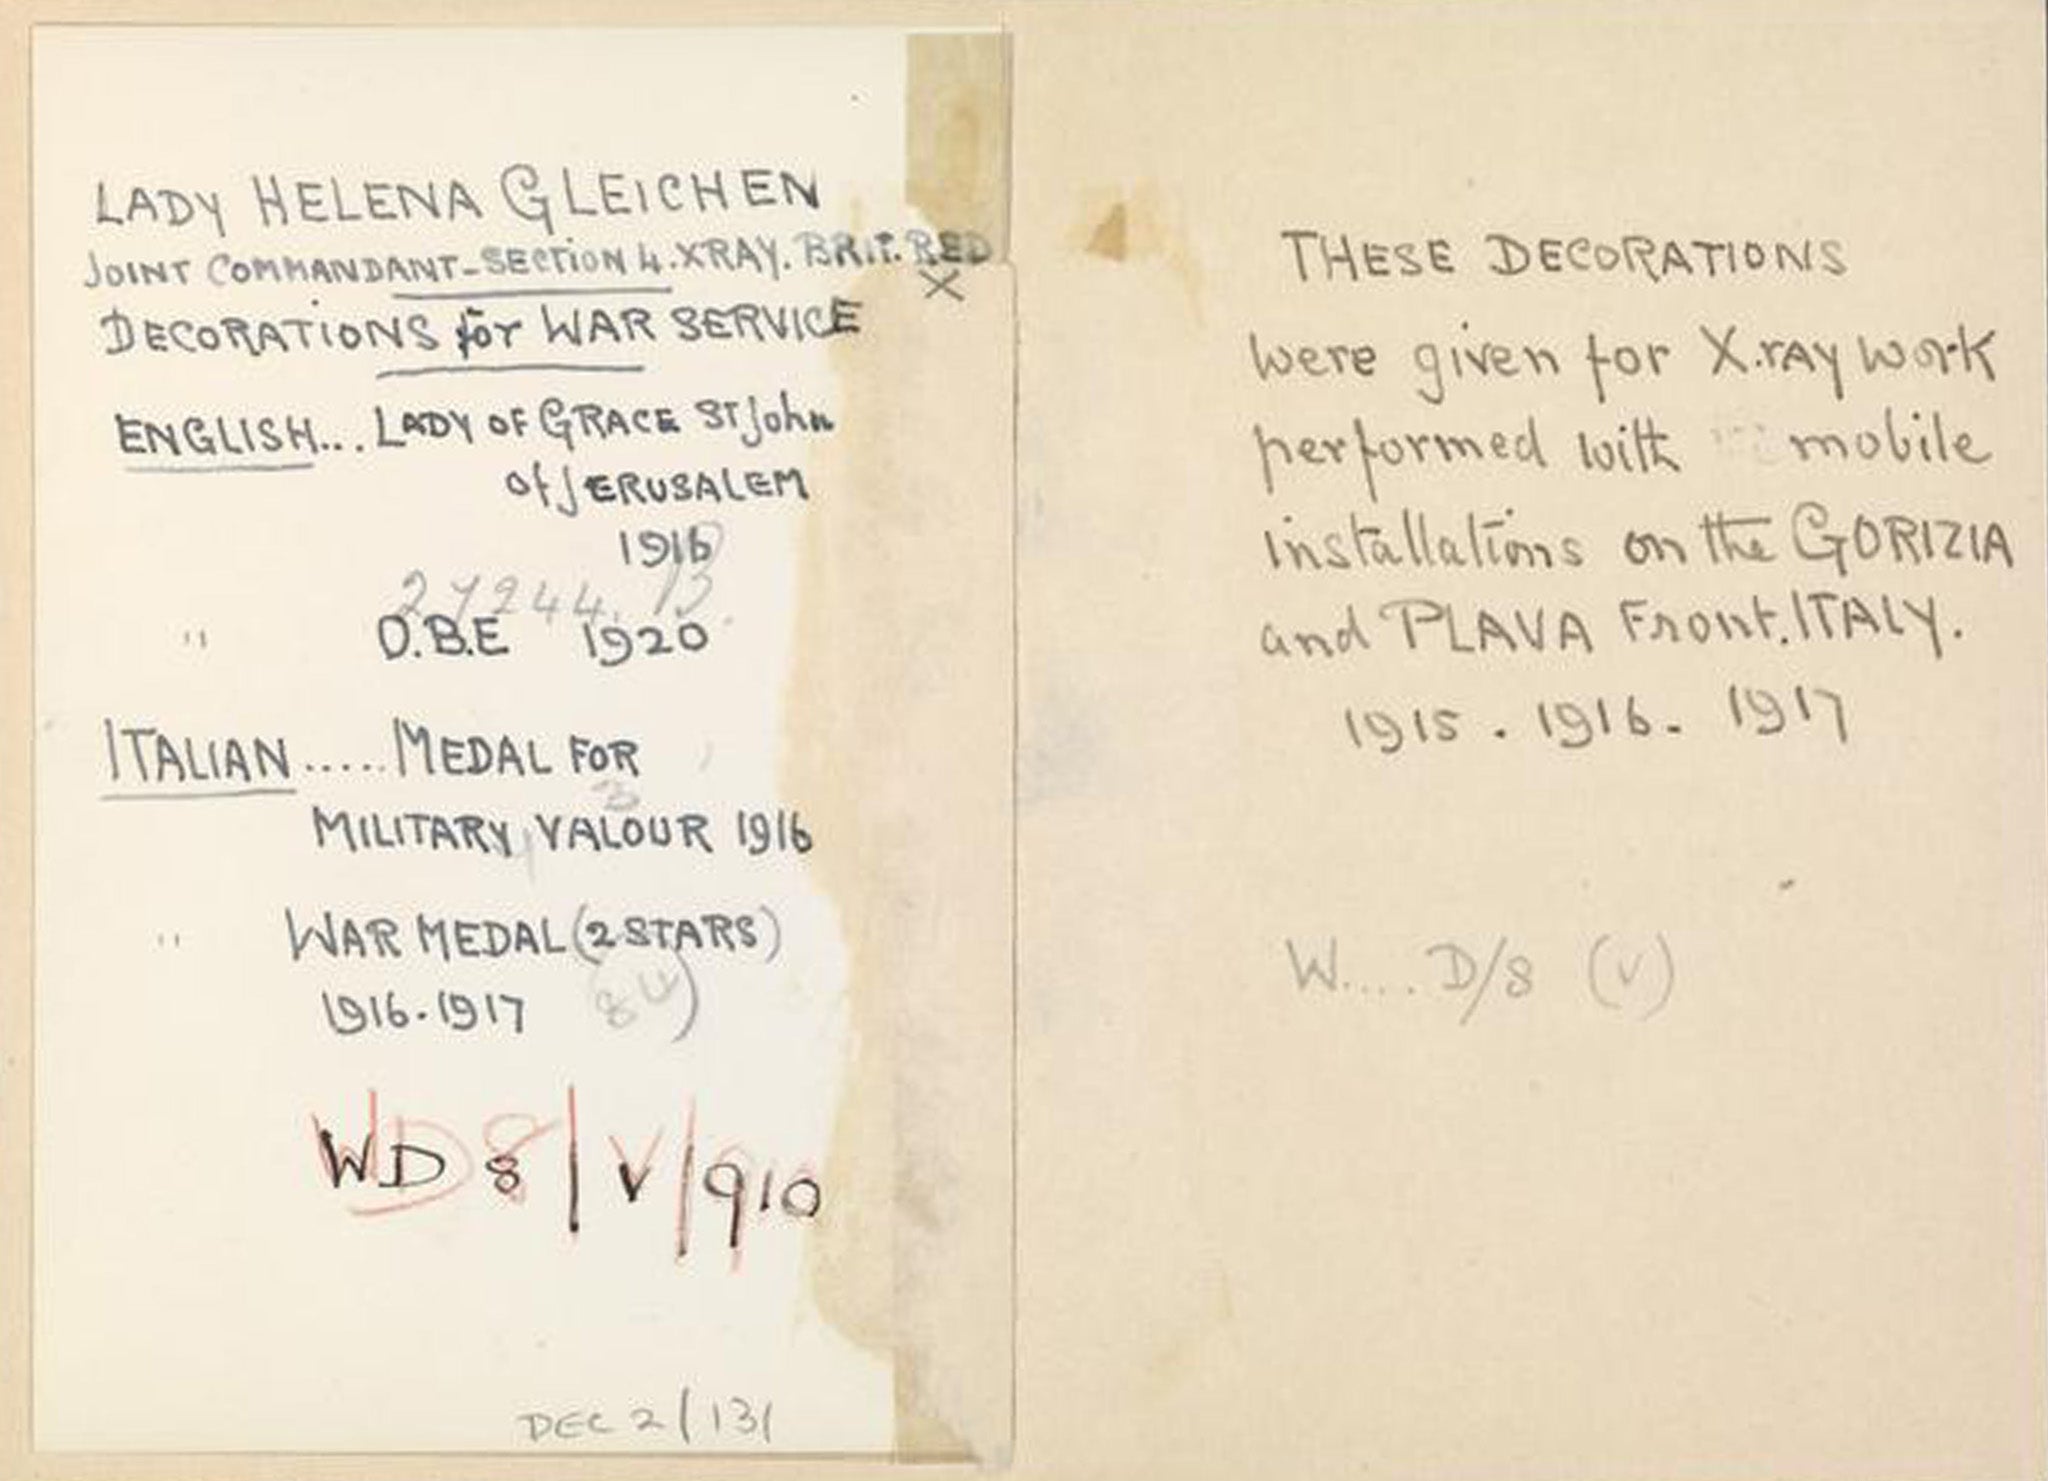 LADY HELENA GLEICHEN
JOINT COMMANDANT-SECTION 4. XRAY. BRIT. RED
X
DECORATIONS for WAR SERVICE
ENGLISH... LADY OF GRACE ST John
of JERUSALEM
1916
" O.B.E 1920
ITALIAN ..... MEDAL FOR
MILITARY VALOUR 1916
" WAR MEDAL (2 STARS)
1916.1917
WD 8/V/910
DEC 2/131
THESE DECORATIONS
were given for X.rAY work
performed with mobile
installations on the GORIZIA
and PLAVA Front. ITALY.
1915 . 1916 - 1917
W.... D/8 (V)